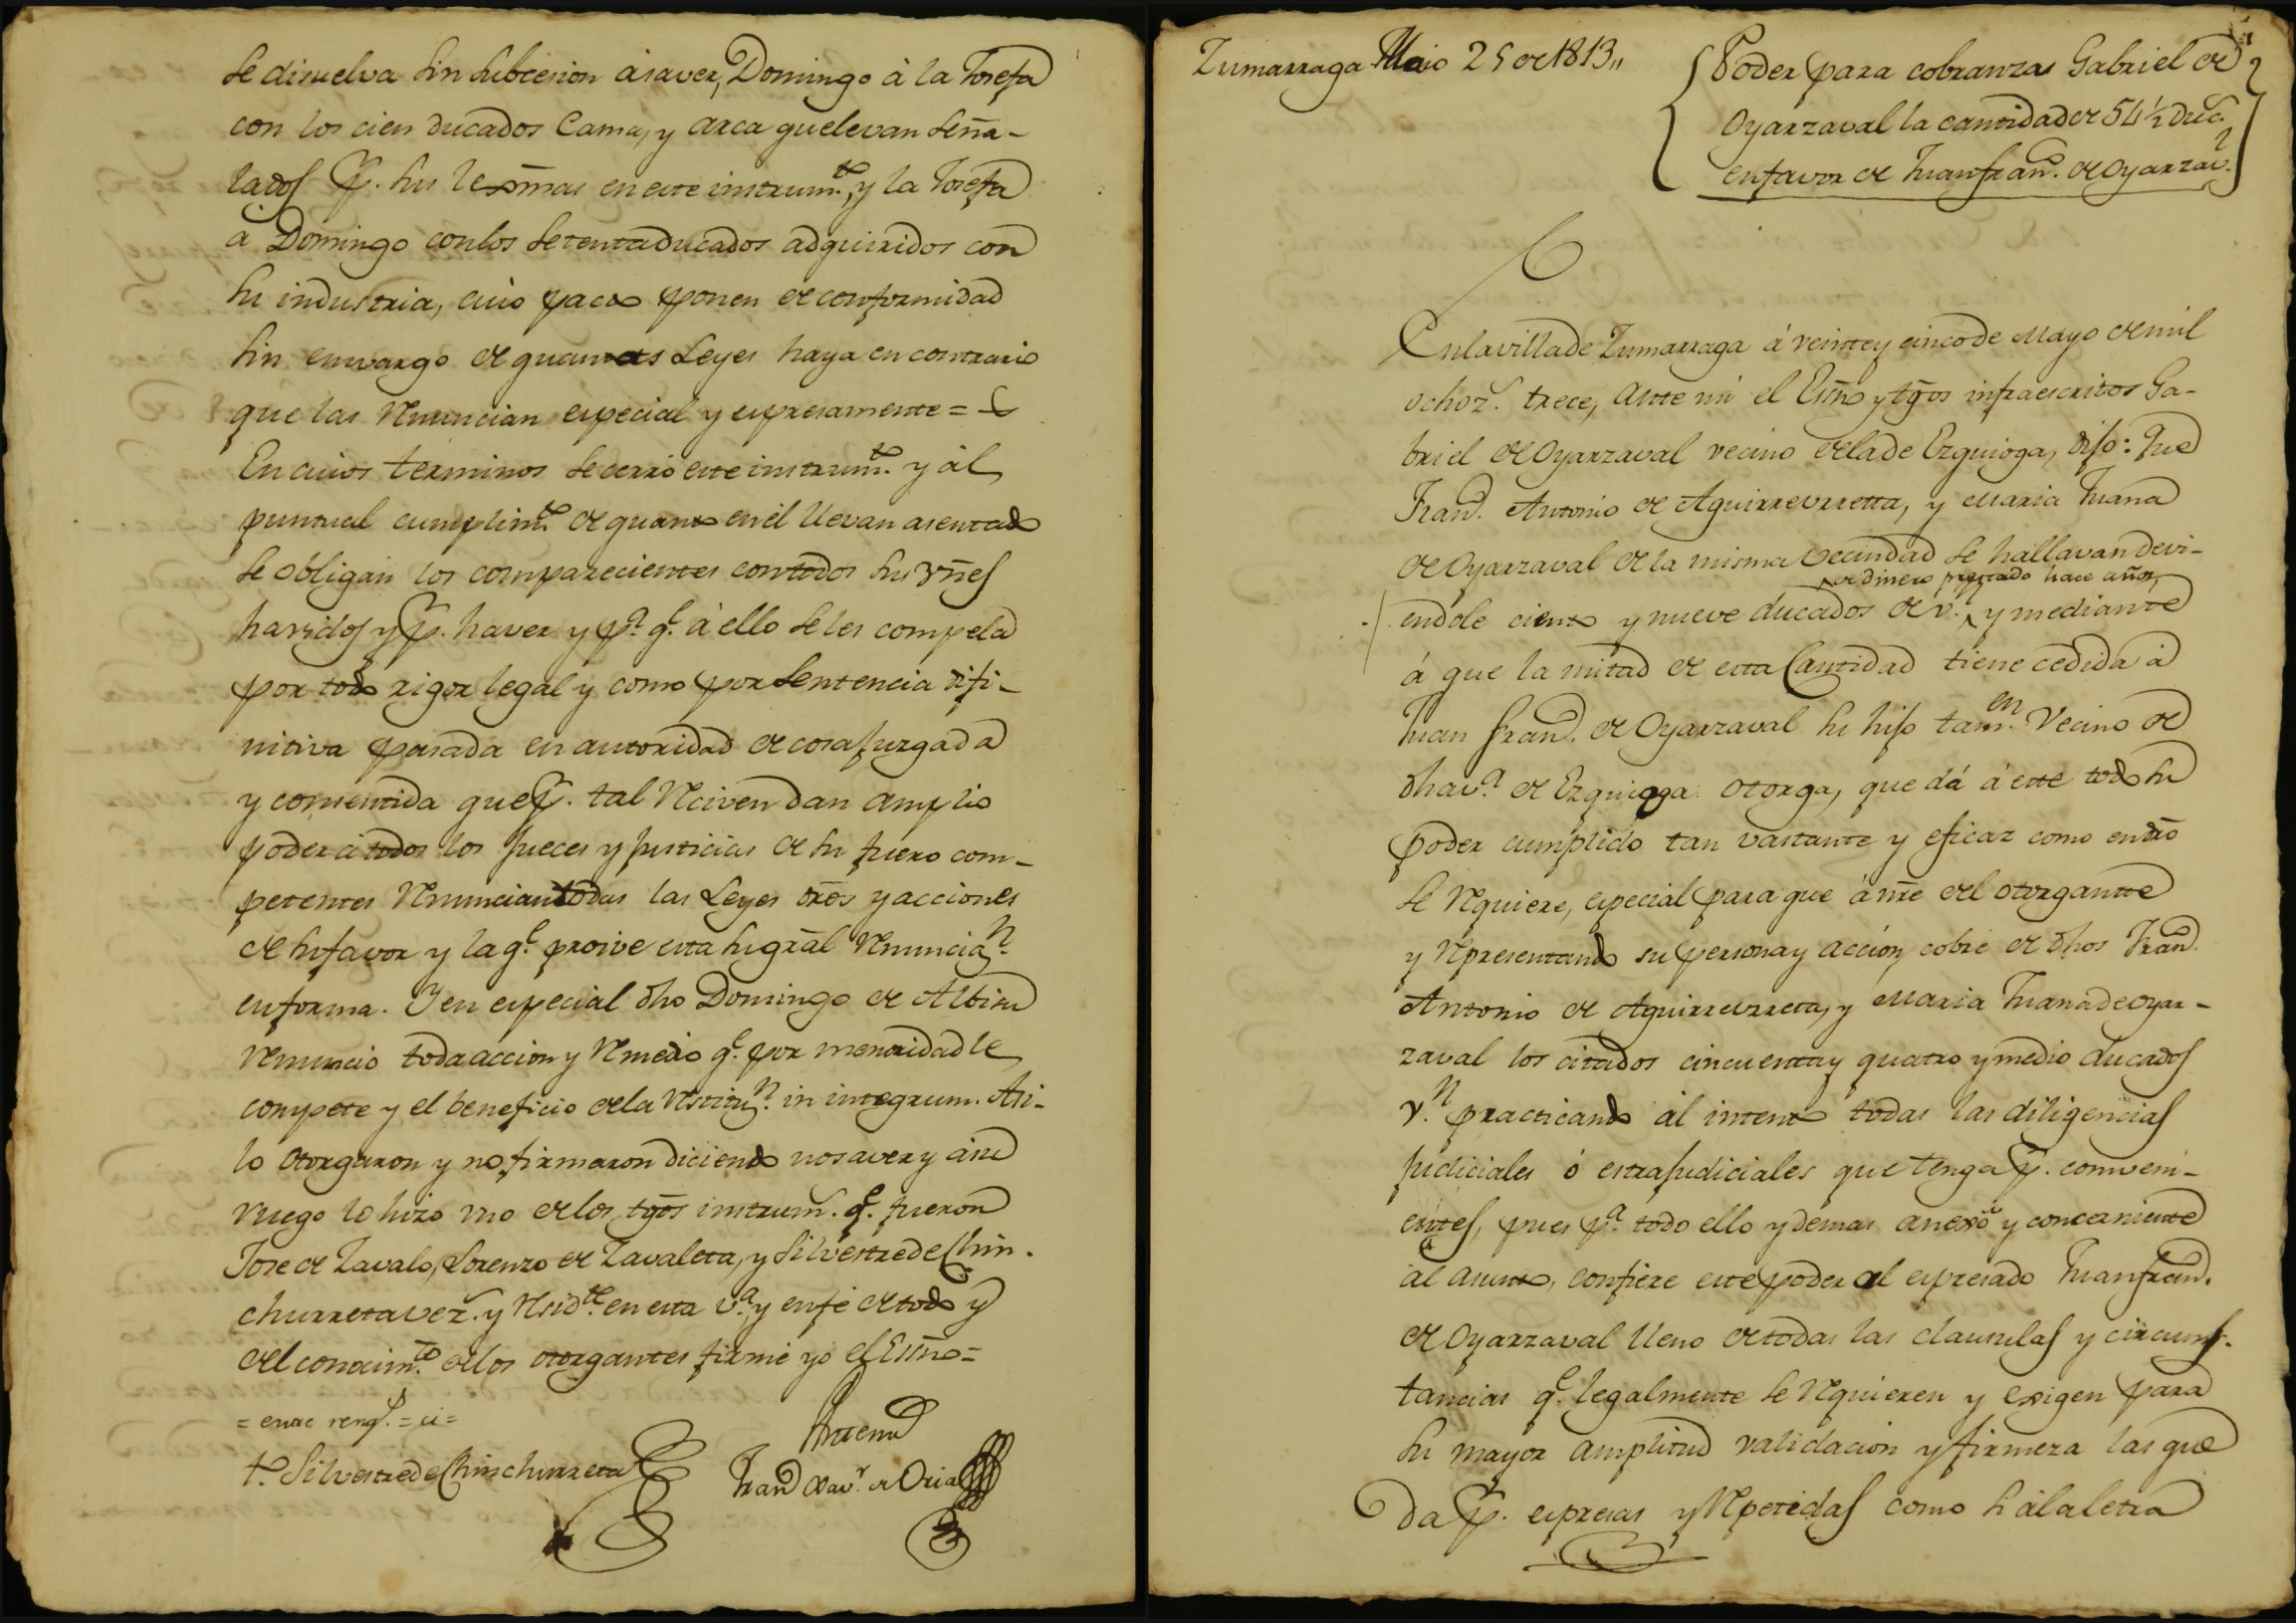 se disuelva sin subcesion à saver, Domingo à la Josefa
con los cien ducados Cama, y arca que levan seña-
lados p.r sus lexmas en este instrum.to, y la Josefa
a Domingo con los setenta ducados adquiridos con
su industria, cuio pacto ponen de conformidad
sin emvargo de quantas Leyes haya en contrario
que las renuncian especial y expresamente =
En cuios terminos se cerrò este instrum.to y àl
puntual cumplim.to de quanto en èl llevan asentado
se òbligan los comparecientes con todos sus vnes
havidos y p.r haver y p.a q.e à ello se les compela
por todo rigor legal y como por Sentencia difi-
nitiva pasada en autoridad de cosa juzgada
y consentida que p.r tal reciven dan amplio
poder à todos los jueces y justicias de su fuero com-
petentes renuncian todas las Leyes dros y acciones
de su favor y la q.e proive esta su gral renuncia.n
en forma. Y en especial dho Domingo de Albisu
renunciò toda accion y remedio q.e por menoridad le
compete y el beneficio de la restitu.n in integrum. Asi-
lo otorgaron y no firmaron diciendo no saver y à su
ruego lo hizo uno de los tgos instrum.s q.e fueron
Jose de Zavalo, Lorenzo de Zavaleta, y Silvestre de Chin-
churreta vez.s y resid.tes en esta v.a y en fè de todo y
del conocim.to de los otorgantes firmè yo el Esño =
= entre reng.s = ci =
t.o Silvestre de Chinchurreta
Antemi
Fran.co Xav.r de Oria
Zumarraga Maio 25 de 1813,,
Poder para cobranzas Gabriel de
Oyarzaval la cantidad de 54 1/2 duc.s
en favor de Juan fran.co de Oyarzav.l
En la villa de Zumarraga á veinte y cinco de Mayo de mil
ochoz.s trece, ante mi el Esño y tgos infraescritos Ga-
briel de Oyarzaval vecino de la de Ezquioga, dijo: Que
Fran.co Antonio de Aguirreurretta, y Maria Juana
de Oyarzaval de la misma vecindad se hallavan devi-
de dinero prestado hace años,
endole ciento y nueve ducados de v.n y mediante
á que la mitad de esta Cantidad tiene cedida à
Juan Fran.co de Oyarzaval su hijo tam.en Vecino de
dha v.a de Ezquioga: otorga, que dá á este todo su
poder cumplido tan vastante y eficaz como en dro
se requiere, especial para que á nre del otorgante
y representando su persona y acciòn, cobre de dhos Fran.co
Antonio de Aguirreurreta, y Maria Juana de oyar-
zaval los citados cincuenta y quatro y medio ducados
v.n practicando àl intento todas las diligencias
judiciales ò estrajudiciales que tenga p.r conveni-
entes, pues p.a todo ello y demas anexo y concerniente
àl asunto, confiere este poder al expresado Juan fran.co
de Oyarzaval lleno de todas las clausulas y circuns-
tancias q.e legalmente se requieren y exigen para
su mayor amplitud validacion y firmeza las que
da p.r expresas y repetidas como si à la letra